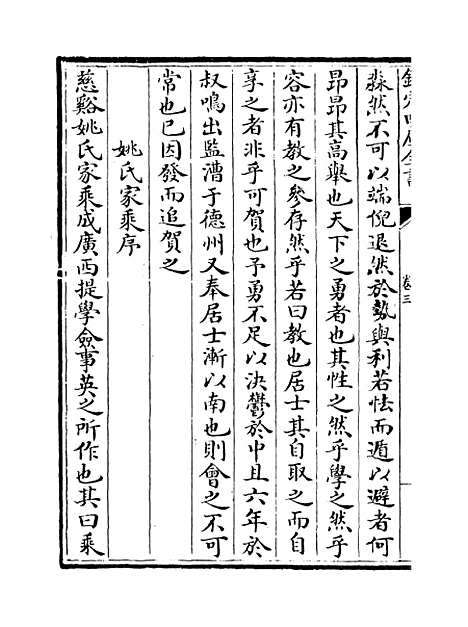 欽定四庫全書
卷三
淼然不可以端倪退然於勢與利若怯而遁以避者何
昂昂其高舉也天下之勇者也其性之然乎學之然乎
容亦有教之參存然乎若曰教也居士其自取之而自
享之者非乎可賀也予勇不足以決鬱於中且六年於
叔鳴出監漕于德州又奉居士漸以南也則會之不可
常也已因發而追賀之
姚氏家乘序
慈谿姚氏家乘成廣西提學僉事英之所作也其曰乘